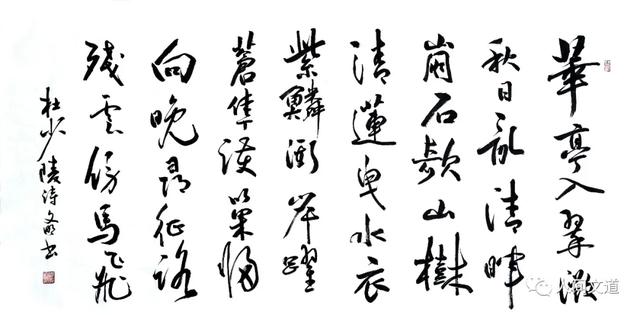 華亭入翠微
秋日亂清暉
崩石欹山樹
清蓮曳水衣
紫鱗衝岸躍
蒼隼護巢歸
向晚尋征路
殘雲傍馬飛
杜少陵詩 書
文道